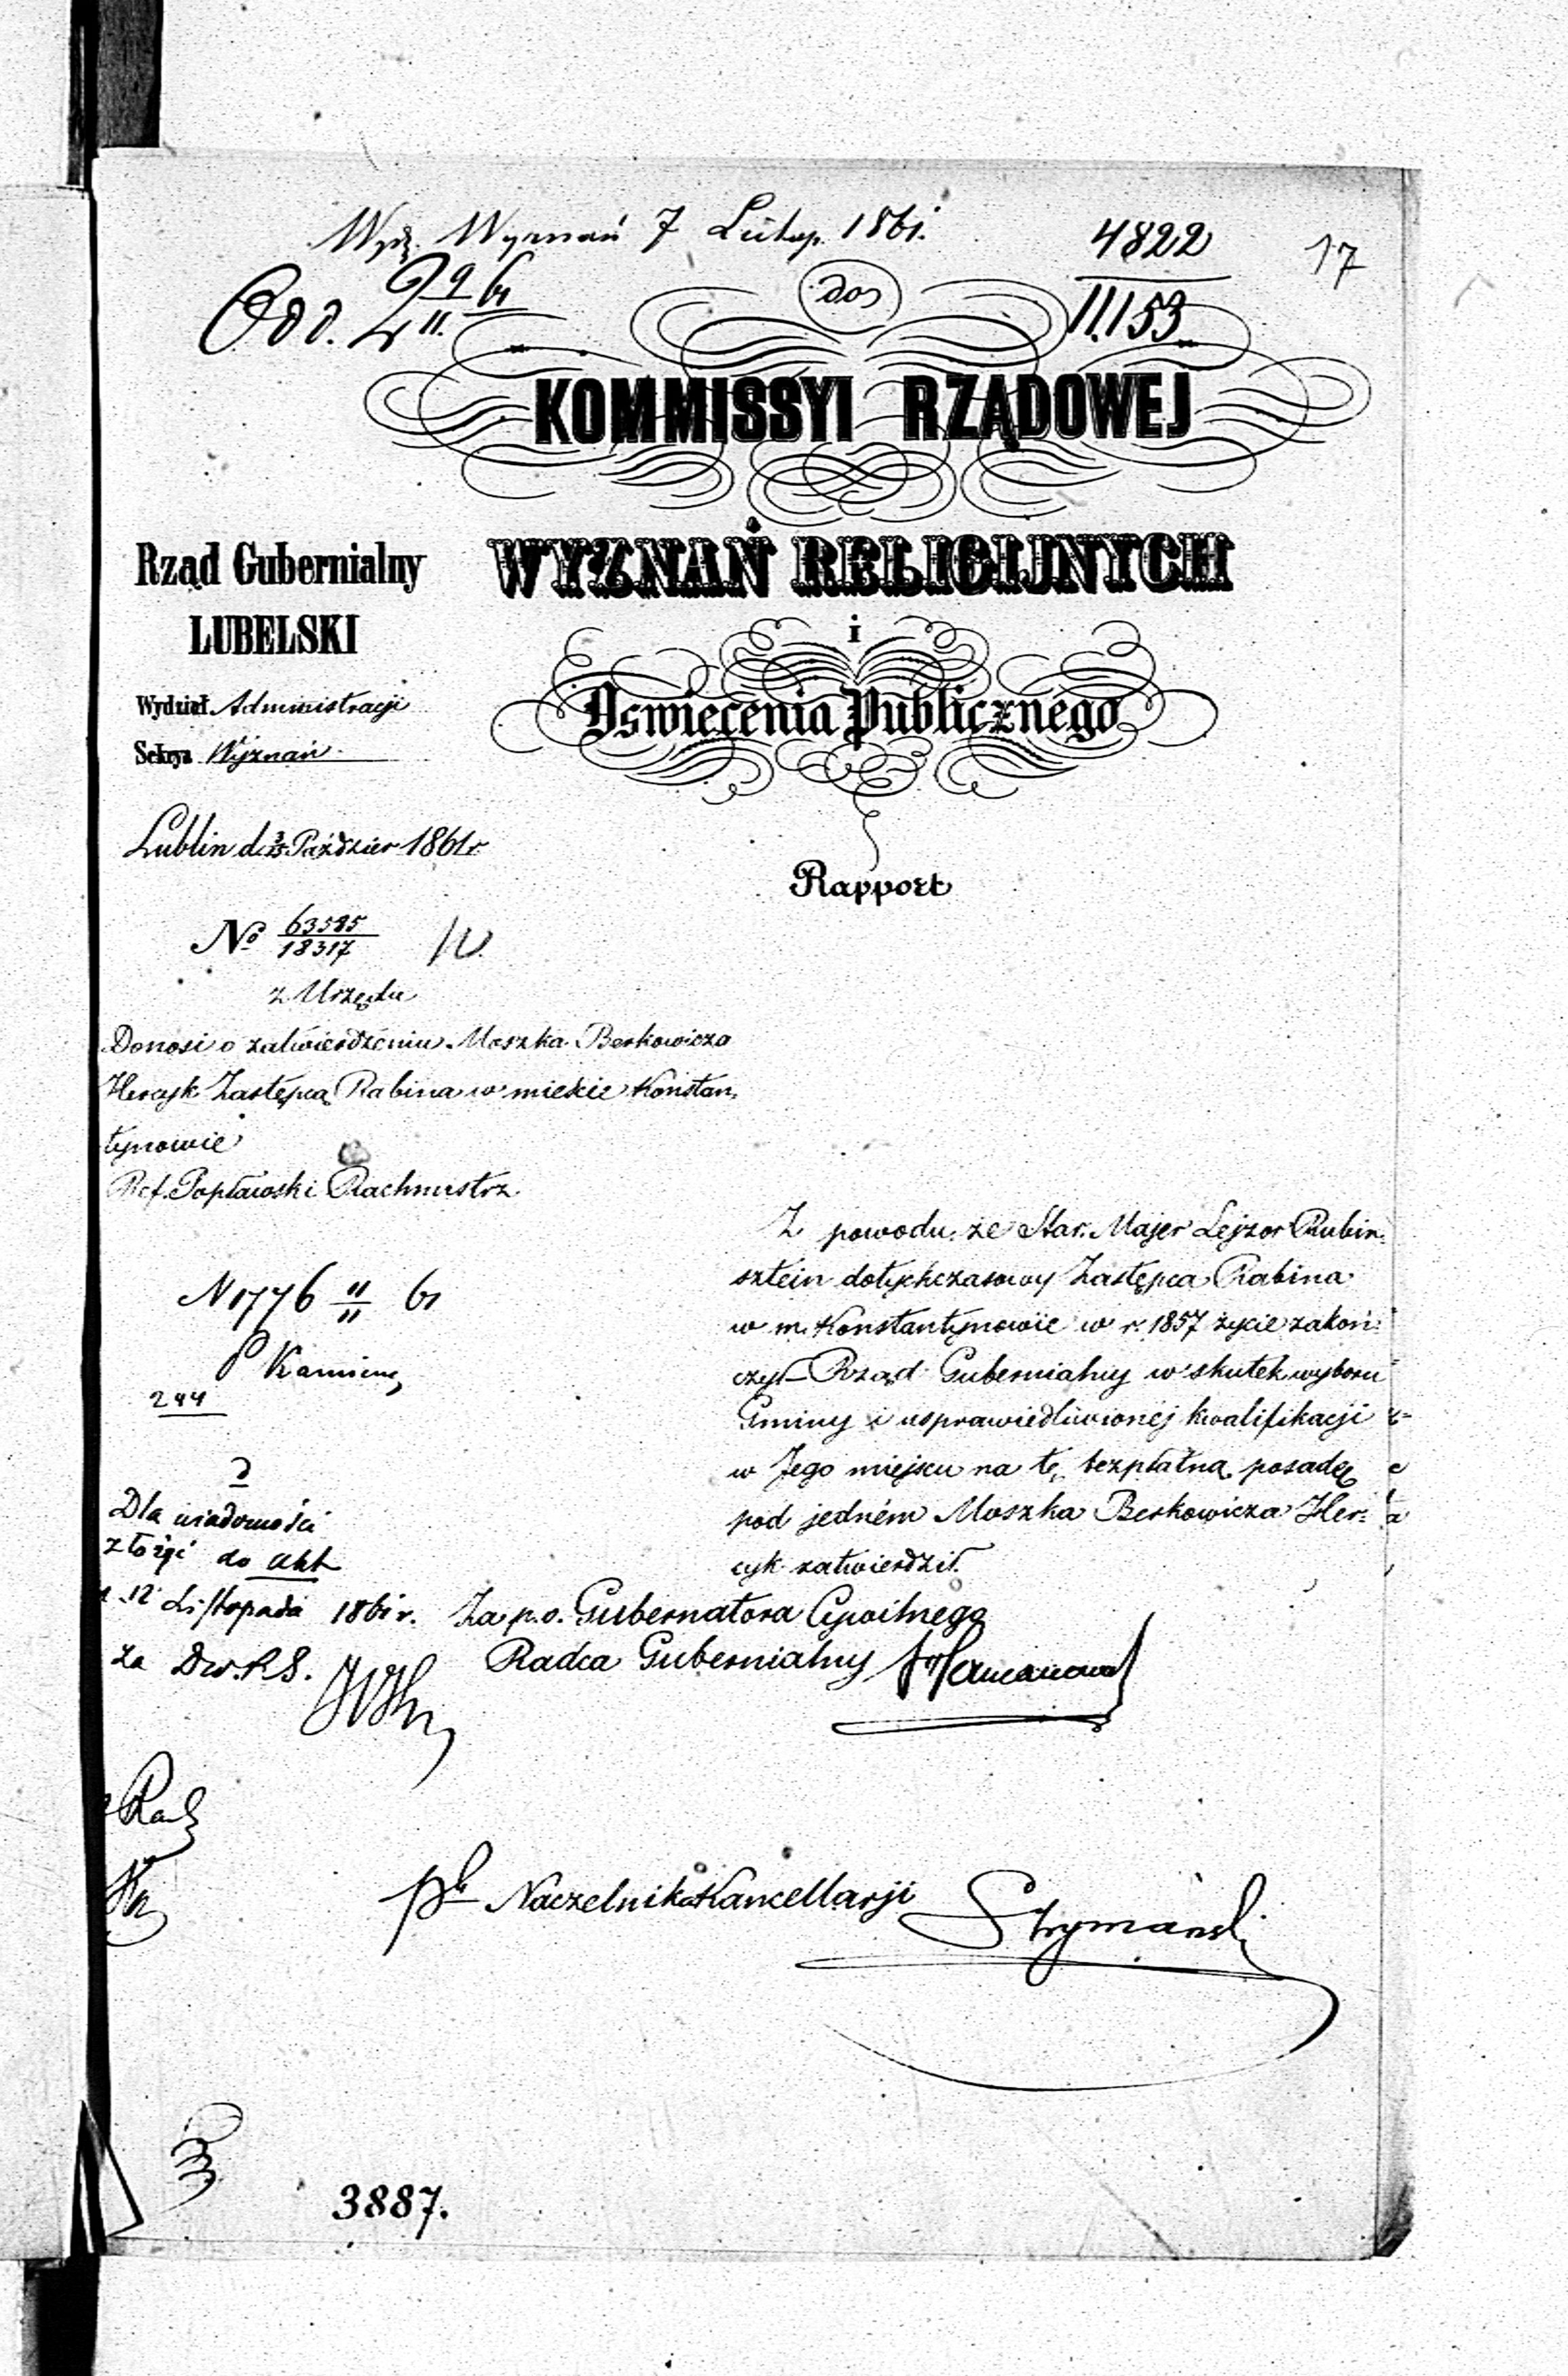 Wydz. Wyznań 7 Listop. 1861.
4822
II.153
17
Odd. 2 9/11 61
do
KOMMISSYI RZĄDOWEJ
WYZNAŃ RELIGIJNYCH
i
Oswiecenia Publicznego
Rząd Gubernialny
LUBELSKI
Wydział Administracji
Sekcya Wyznań
Lublin d. 3/15 Paździer 1861 r.
Rapport
No 63585/18317
z Urzędu
Donosi o zatwierdzeniu Moszka Berkowicza
Hercyk Zastępcą Rabina w mieście Konstan,
tynowie
Ref. Popławski Rachmistrz
Z powodu, że Star. Majer Lejzor Rubin,
sztein dotychczasowy Zastępca Rabina
w m. Konstantynowie w r. 1857 życie zakoń:
czył – Rząd Gubernialny w skutek wyboru
Gminy i usprawiedliwionej kwalifikacji
w Jego miejscu na tę bezpłatną posadę
pod jedném Moszka Berkowicza Her:
cyk zatwierdził.
N 1776 11/11 61
P Kamieng
244
Dla wiadomości
złożyć do akt
12 Listopada 1861 r.
za Dw. R S.
Za p.o. Gubernatora Cywilnego
Radca Gubernialny
Naczelnik Kancellarji Szymański
3887.